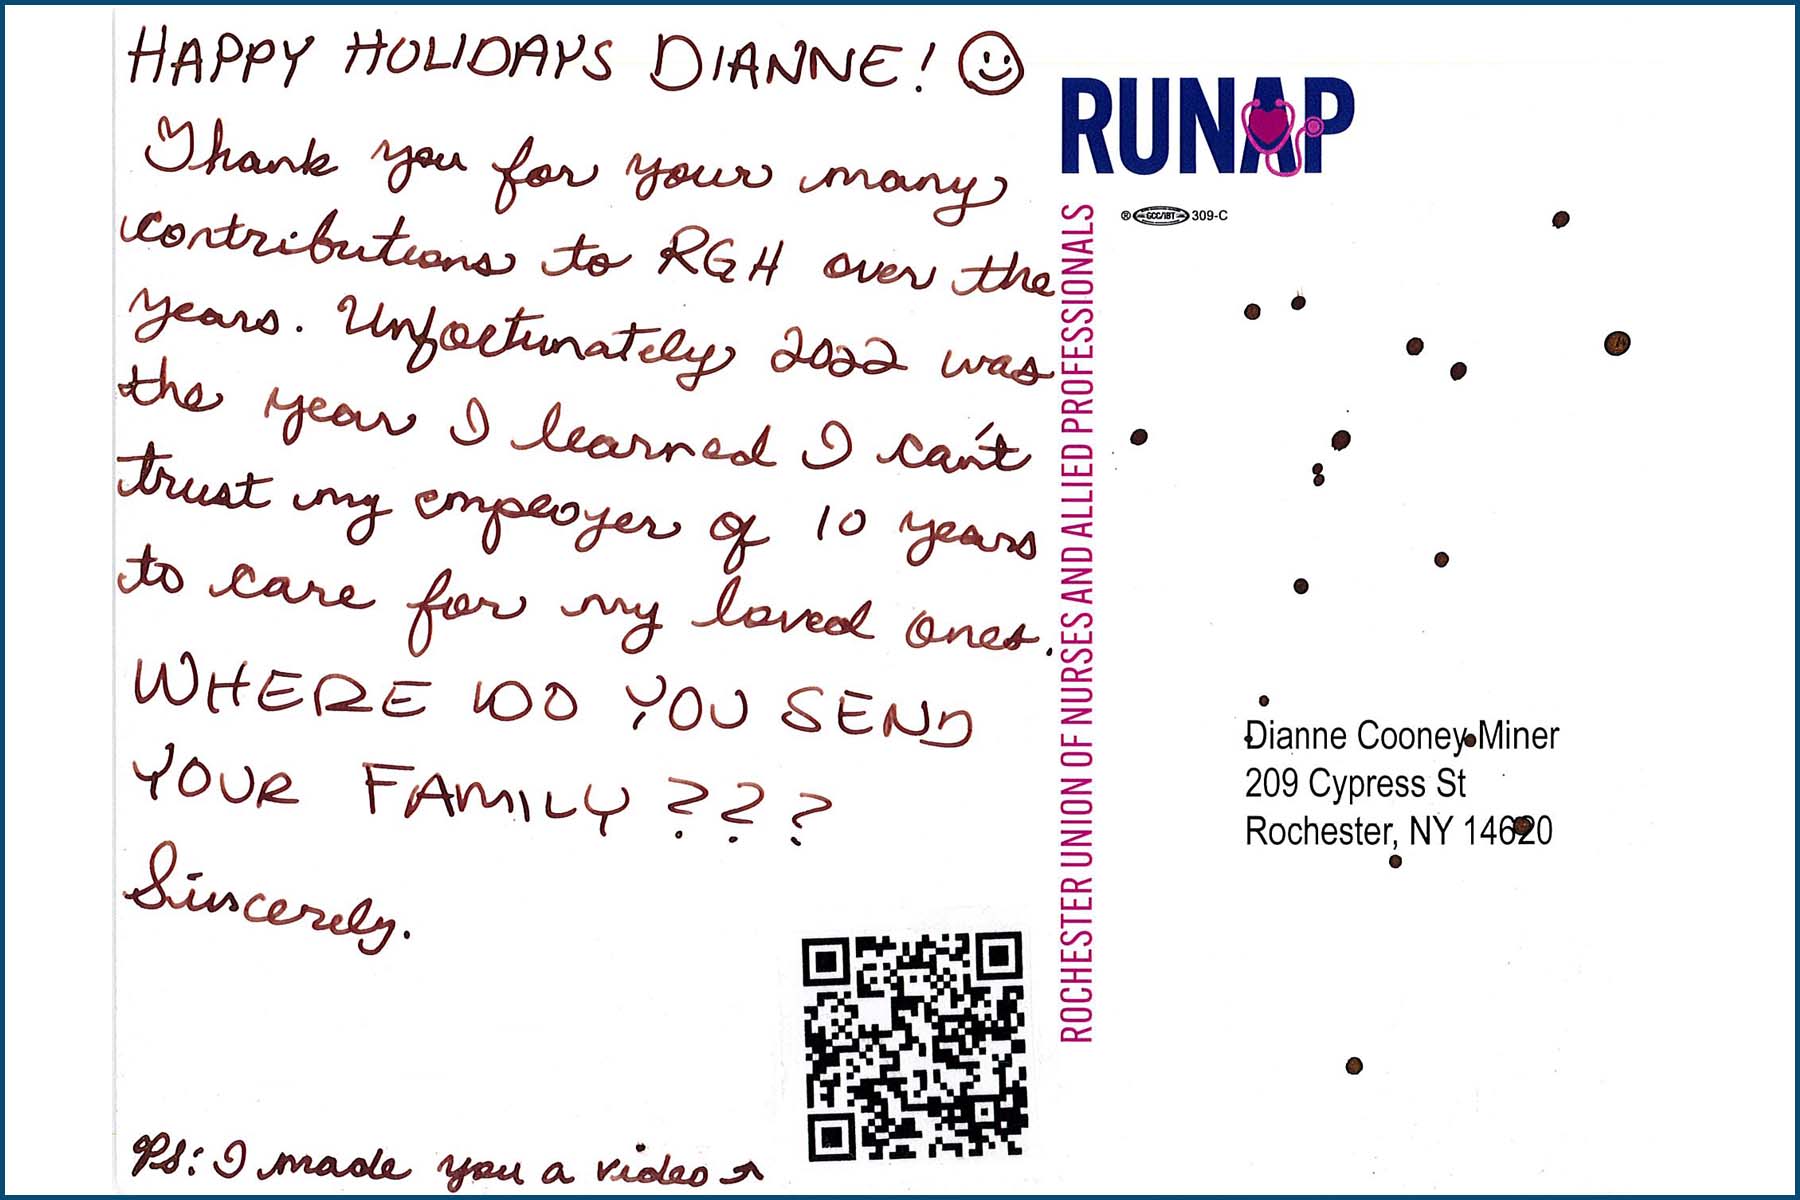 HAPPY HOLIDAYS DIANNE!
Thank you for your many
contributions to RGH over the
years. Unfortunately 2022 was
the year I learned I can't
trust my employer of 10 years
to care for my loved ones.
WHERE DO YOU SEND
YOUR FAMILY ???
Sincerely.
PS: I made you a video
RUNAP
® GCC/IBT 309-C
ROCHESTER UNION OF NURSES AND ALLIED PROFESSIONALS
Dianne Cooney Miner
209 Cypress St
Rochester, NY 14620